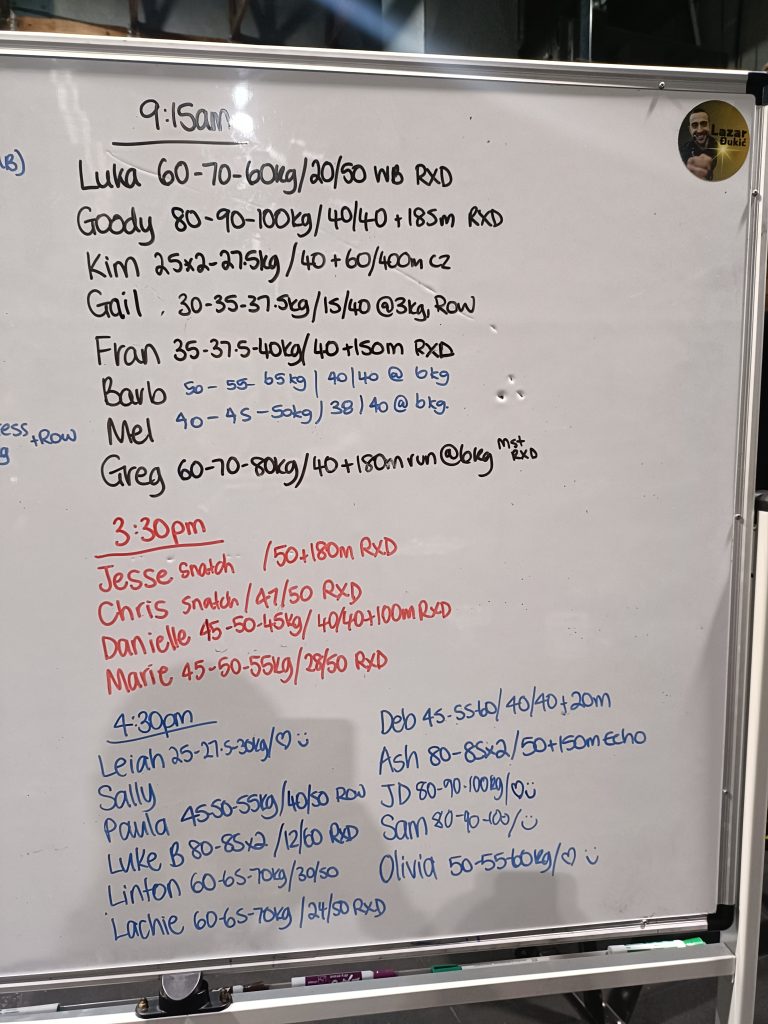 9:15am
Luka 60-70-60kg/20/50 WB RXD
Goody 80-90-100kg/40/40+185m RXD
Kim 25x2-27.5kg/40+60/400m C2
Gail 30-35-37.5kg/15/40 @3kg, Row
Fran 35-37.5-40kg/40+150m RXD
Barb 50-55-65kg/40/40 @ 6kg
Mel 40-45-50kg/38/40 @ 6kg.
Greg 60-70-80kg/40+180m run @6kg Mst RXD
3:30pm
Jesse Snatch /50+180m RXD
Chris Snatch/47/50 RXD
Danielle 45-50-45kg/40/40+100m RXD
Marie 45-50-55kg/28/50 RXD
4:30pm
Leiah 25-27.5-30kg/♡ ü
Sally
Paula 45-50-55kg/40/50 ROW
Luke B 80-85x2/12/60 RXD
Linton 60-65-70kg/30/50
Lachie 60-65-70kg/24/50 RXD
Deb 45-5560/40/40+20m
Ash 80-85x2/50+150m Echo
JD 80-90-100kg/♡ü
Sam 80-90-100/ü
Olivia 50-5560kg/♡ ü
+ROW
Lazar
Đukić